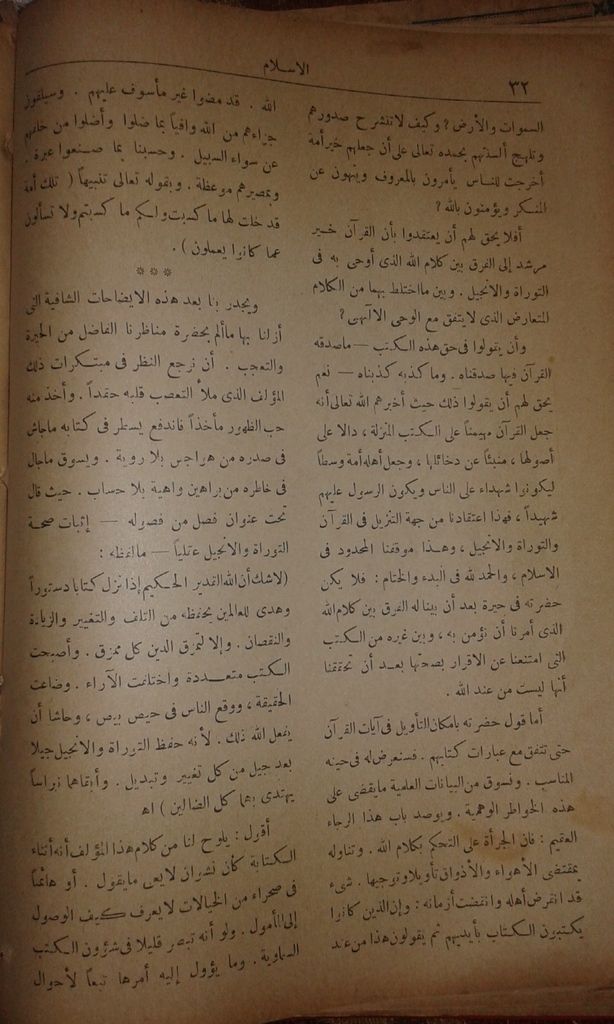 ٣٢
الاسلام
السموات والأرض ؟ وكيف لا تنشرح صدورهم
وتلهج ألسنتهم بحمده تعالى على أن جعلهم خير أمة
أخرجت للناس يأمرون بالمعروف وينهون عن
المنكر ويؤمنون بالله ؟
أفلا يحق لهم أن يعتقدوا بأن القرآن خير
مرشد إلى الفرق بين كلام الله الذى أوحى به فى
التوراة والانجيل . وبين ما اختلط بهما من الكلام
المتعارض الذى لا يتفق مع الوحى الالهى ؟
وأن يقولوا فى حق هذه الكتب — ما صدقه
القرآن فيها صدقناه . وما كذبه كذبناه — نعم
يحق لهم أن يقولوا ذلك حيث أخبرهم الله تعالى أنه
جعل القرآن مهيمناً على الكتب المنزلة ، دالا على
أصولها ، منبئاً عن دخائلها ، وجعل أهله أمة وسطاً
ليكونوا شهداء على الناس ويكون الرسول عليهم
شهيداً ، فهذا اعتقادنا من جهة التنزيل فى القرآن
والتوراة والانجيل ، وهذا موقفنا المحدود فى
الاسلام ، والحمد لله فى البدء والختام : فلا يكن
حضرته فى حيرة بعد أن بينا له الفرق بين كلام الله
الذى أمرنا أن نؤمن به ، وبين غيره من الكتب
التى امتنعنا عن الاقرار بصحتها بعد أن تحققنا
أنها ليست من عند الله .
أما قول حضرته بامكان التأويل فى آيات القرآن
حتى تتفق مع عبارات كتابهم . فسنعرض له فى حينه
المناسب . ونسوق من البيانات العلمية ما يقضى على
هذه الخواطر الوهمية . ويوصد باب هذا الرجاء
العقيم : فان الجرأة على التحكم بكلام الله . وتناوله
بمقتضى الأهواء والأذواق تأويلا وتوجيها . شىء
قد انقرض أهله وانقضت أزمانه : وإن الذين كانوا
يكتبون الكتاب بأيديهم ثم يقولون هذا من عند
الله . قد مضوا غير مأسوف عليهم . وسيلقون
جزاءهم من الله وافياً بما ضلوا وأضلوا من خلفهم
عن سواء السبيل . وحسبنا بما صنعوا عبرة .
وبمصيرهم موعظة . وبقوله تعالى تنبيهاً ( تلك أمة
قد خلت لها ما كسبت ولكم ما كسبتم ولا تسألون
عما كانوا يعملون ) .
* * *
ويجدر بنا بعد هذه الايضاحات الشافية التى
أزلنا بها ما ألم بحضرة مناظرنا الفاضل من الحيرة
والتعجب . أن نرجع النظر فى مبتكرات ذلك
المؤلف الذى ملأ التعصب قلبه حقداً . وأخذ منه
حب الظهور مأخذاً فاندفع يسطر فى كتابه ما جاش
فى صدره من هواجس بلا روية . ويسوق ما جال
فى خاطره من براهين واهية بلا حساب . حيث قال
تحت عنوان فصل من فصوله — إثبات صحة
التوراة والانجيل عقلياً — ما لفظه :
(لاشك أن الله القدير الحكيم إذا نزل كتابا دستوراً
وهدى للعالمين يحفظه من التلف والتغيير والزيادة
والنقصان . وإلا لتمزق الدين كل ممزق . وأصبحت
الكتب متعددة واختلفت الآراء . وضاعت
الحقيقة ، ووقع الناس فى حيص بيص ، وحاشا أن
يفعل الله ذلك . لأنه حفظ التوراة والانجيل جيلا
بعد جيل من كل تغيير وتبديل . وأبقاهما نبراساً
يهتدى بهما كل الضالين ) اه
أقول : يلوح لنا من كلام هذا المؤلف أنه أثناء
الكتابة كان نشوان لا يعى ما يقول . أو هائماً
فى صحراء من الخيالات لا يعرف كيف الوصول
إلى المأمول . ولو أنه تبصر قليلا فى شؤون الكتب
السماوية . وما يؤول إليه أمرها تبعاً لأحوال